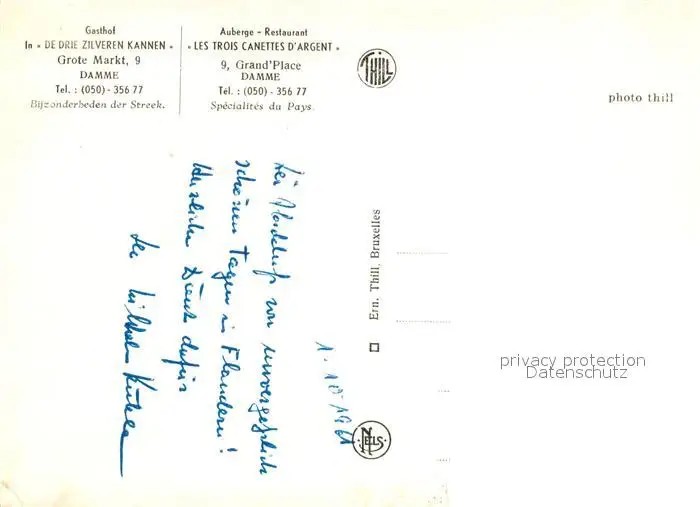 Gasthof
In « DE DRIE ZILVEREN KANNEN »
Grote Markt, 9
DAMME
Tel. : (050) - 356 77
Bijzonderheden der Streek.
Auberge - Restaurant
« LES TROIS CANETTES D'ARGENT »
9, Grand'Place
DAMME
Tél. : (050) - 356 77
Spécialités du Pays.
THILL
photo thill
Ern. Thill, Bruxelles
NELS
1. 10 1961
von unvergeßlich
schönen Tagen in Flandern!
Herzlichen Dank dafür
Wilhelm
privacy protection
Datenschutz